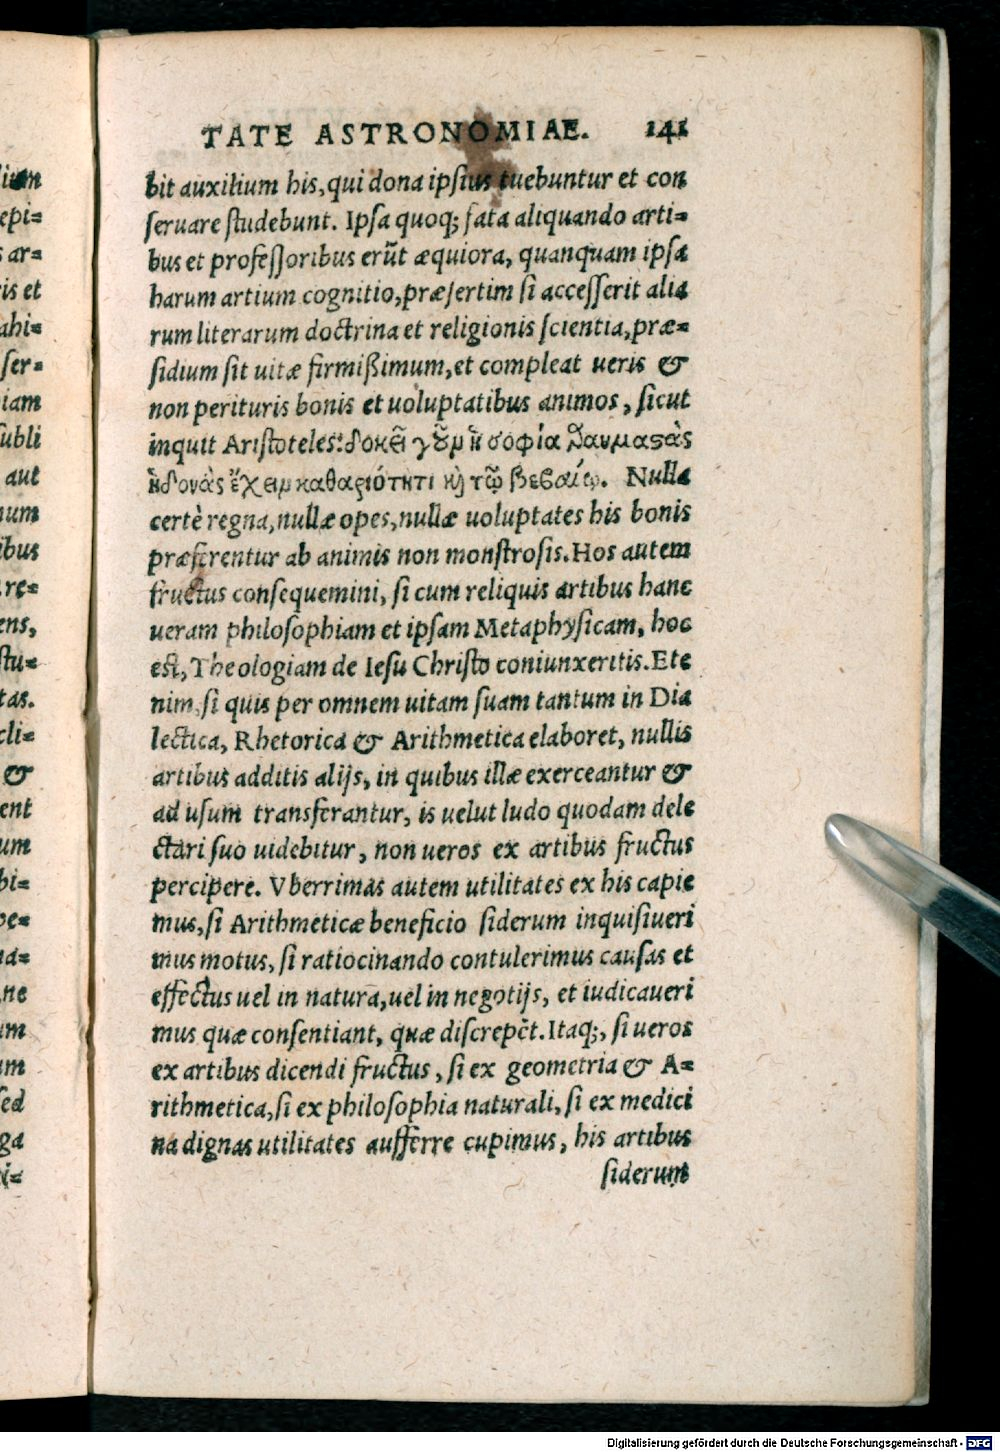 TATE ASTRONOMIAE. 141
bit auxilium his, qui dona ipsius tuebuntur et con
seruare studebunt. Ipsa quoq; fata aliquando arti=
bus et professoribus erūt æquiora, quanquam ipsa
harum artium cognitio, præsertim si accesserit alia
rum literarum doctrina et religionis scientia, præ=
sidium sit uitæ firmißimum, et compleat ueris &
non perituris bonis et uoluptatibus animos, sicut
inquit Aristoteles: δοκεῖ γοῦμ ἡ σοφία θαυμαϛὰς
ἡδονὰς ἔχειμ καθαριότητι κỳ τῷ βεβαίῳ. Nulla
certè regna, nullæ opes, nullæ uoluptates his bonis
præferentur ab animis non monstrosis. Hos autem
fructus consequemini, si cum reliquis artibus hanc
ueram philosophiam et ipsam Metaphysicam, hoc
est, Theologiam de Iesu Christo coniunxeritis. Ete
nim, si quis per omnem uitam suam tantum in Dia
lectica, Rhetorica & Arithmetica elaboret, nullis
artibus additis alijs, in quibus illæ exerceantur &
ad usum transferantur, is uelut ludo quodam dele
ctari suo uidebitur, non ueros ex artibus fructus
percipere. Vberrimas autem utilitates ex his capie
mus, si Arithmeticæ beneficio siderum inquisiueri
mus motus, si ratiocinando contulerimus causas et
effectus uel in natura, uel in negotijs, et iudicaueri
mus quæ consentiant, quæ discrepēt. Itaq;, si ueros
ex artibus dicendi fructus, si ex geometria & A=
rithmetica, si ex philosophia naturali, si ex medici
na dignas utilitates aufferre cupimus, his artibus
siderum
epi=
ar=
is et
ahi=
ser=
iam
subli
aut
num
ibus
re=
ens,
stu=
tas.
cli=
&
ent
um
bi=
ne
um
sed
ga
Digitalisierung gefördert durch die Deutsche Forschungsgemeinschaft - DFG